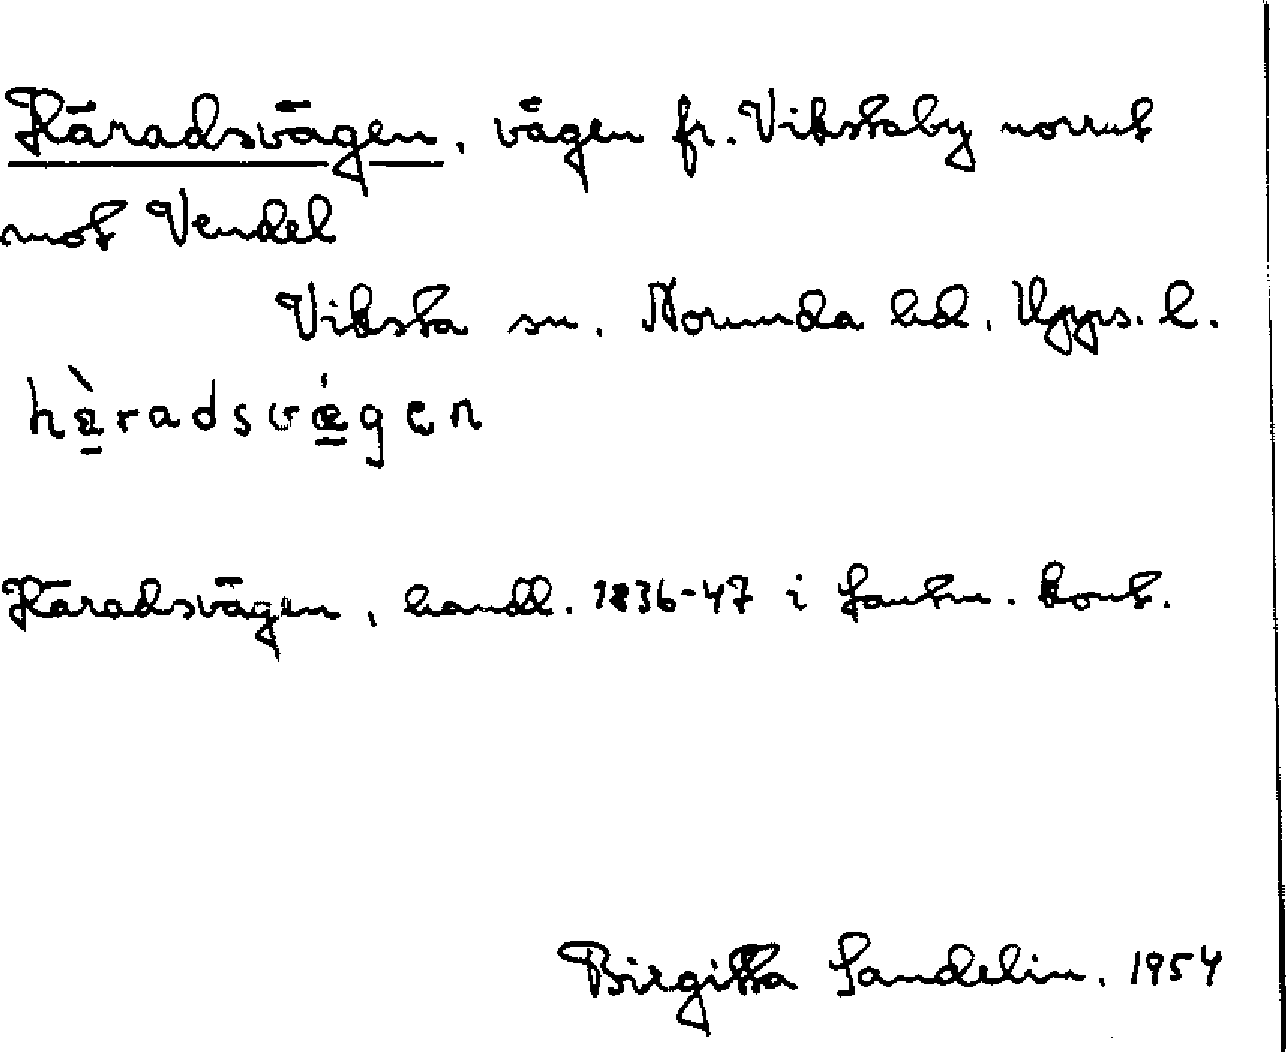 Häradsvägen, vägen fr. Vikstaby norrut
mot Vendel
Viksta sn. Norunda hd. Upps. l.
hä̀radsvǽgen
Häradsvägen, handl. 1836-47 i lantm. kont.
Birgitta Sandelin. 1954